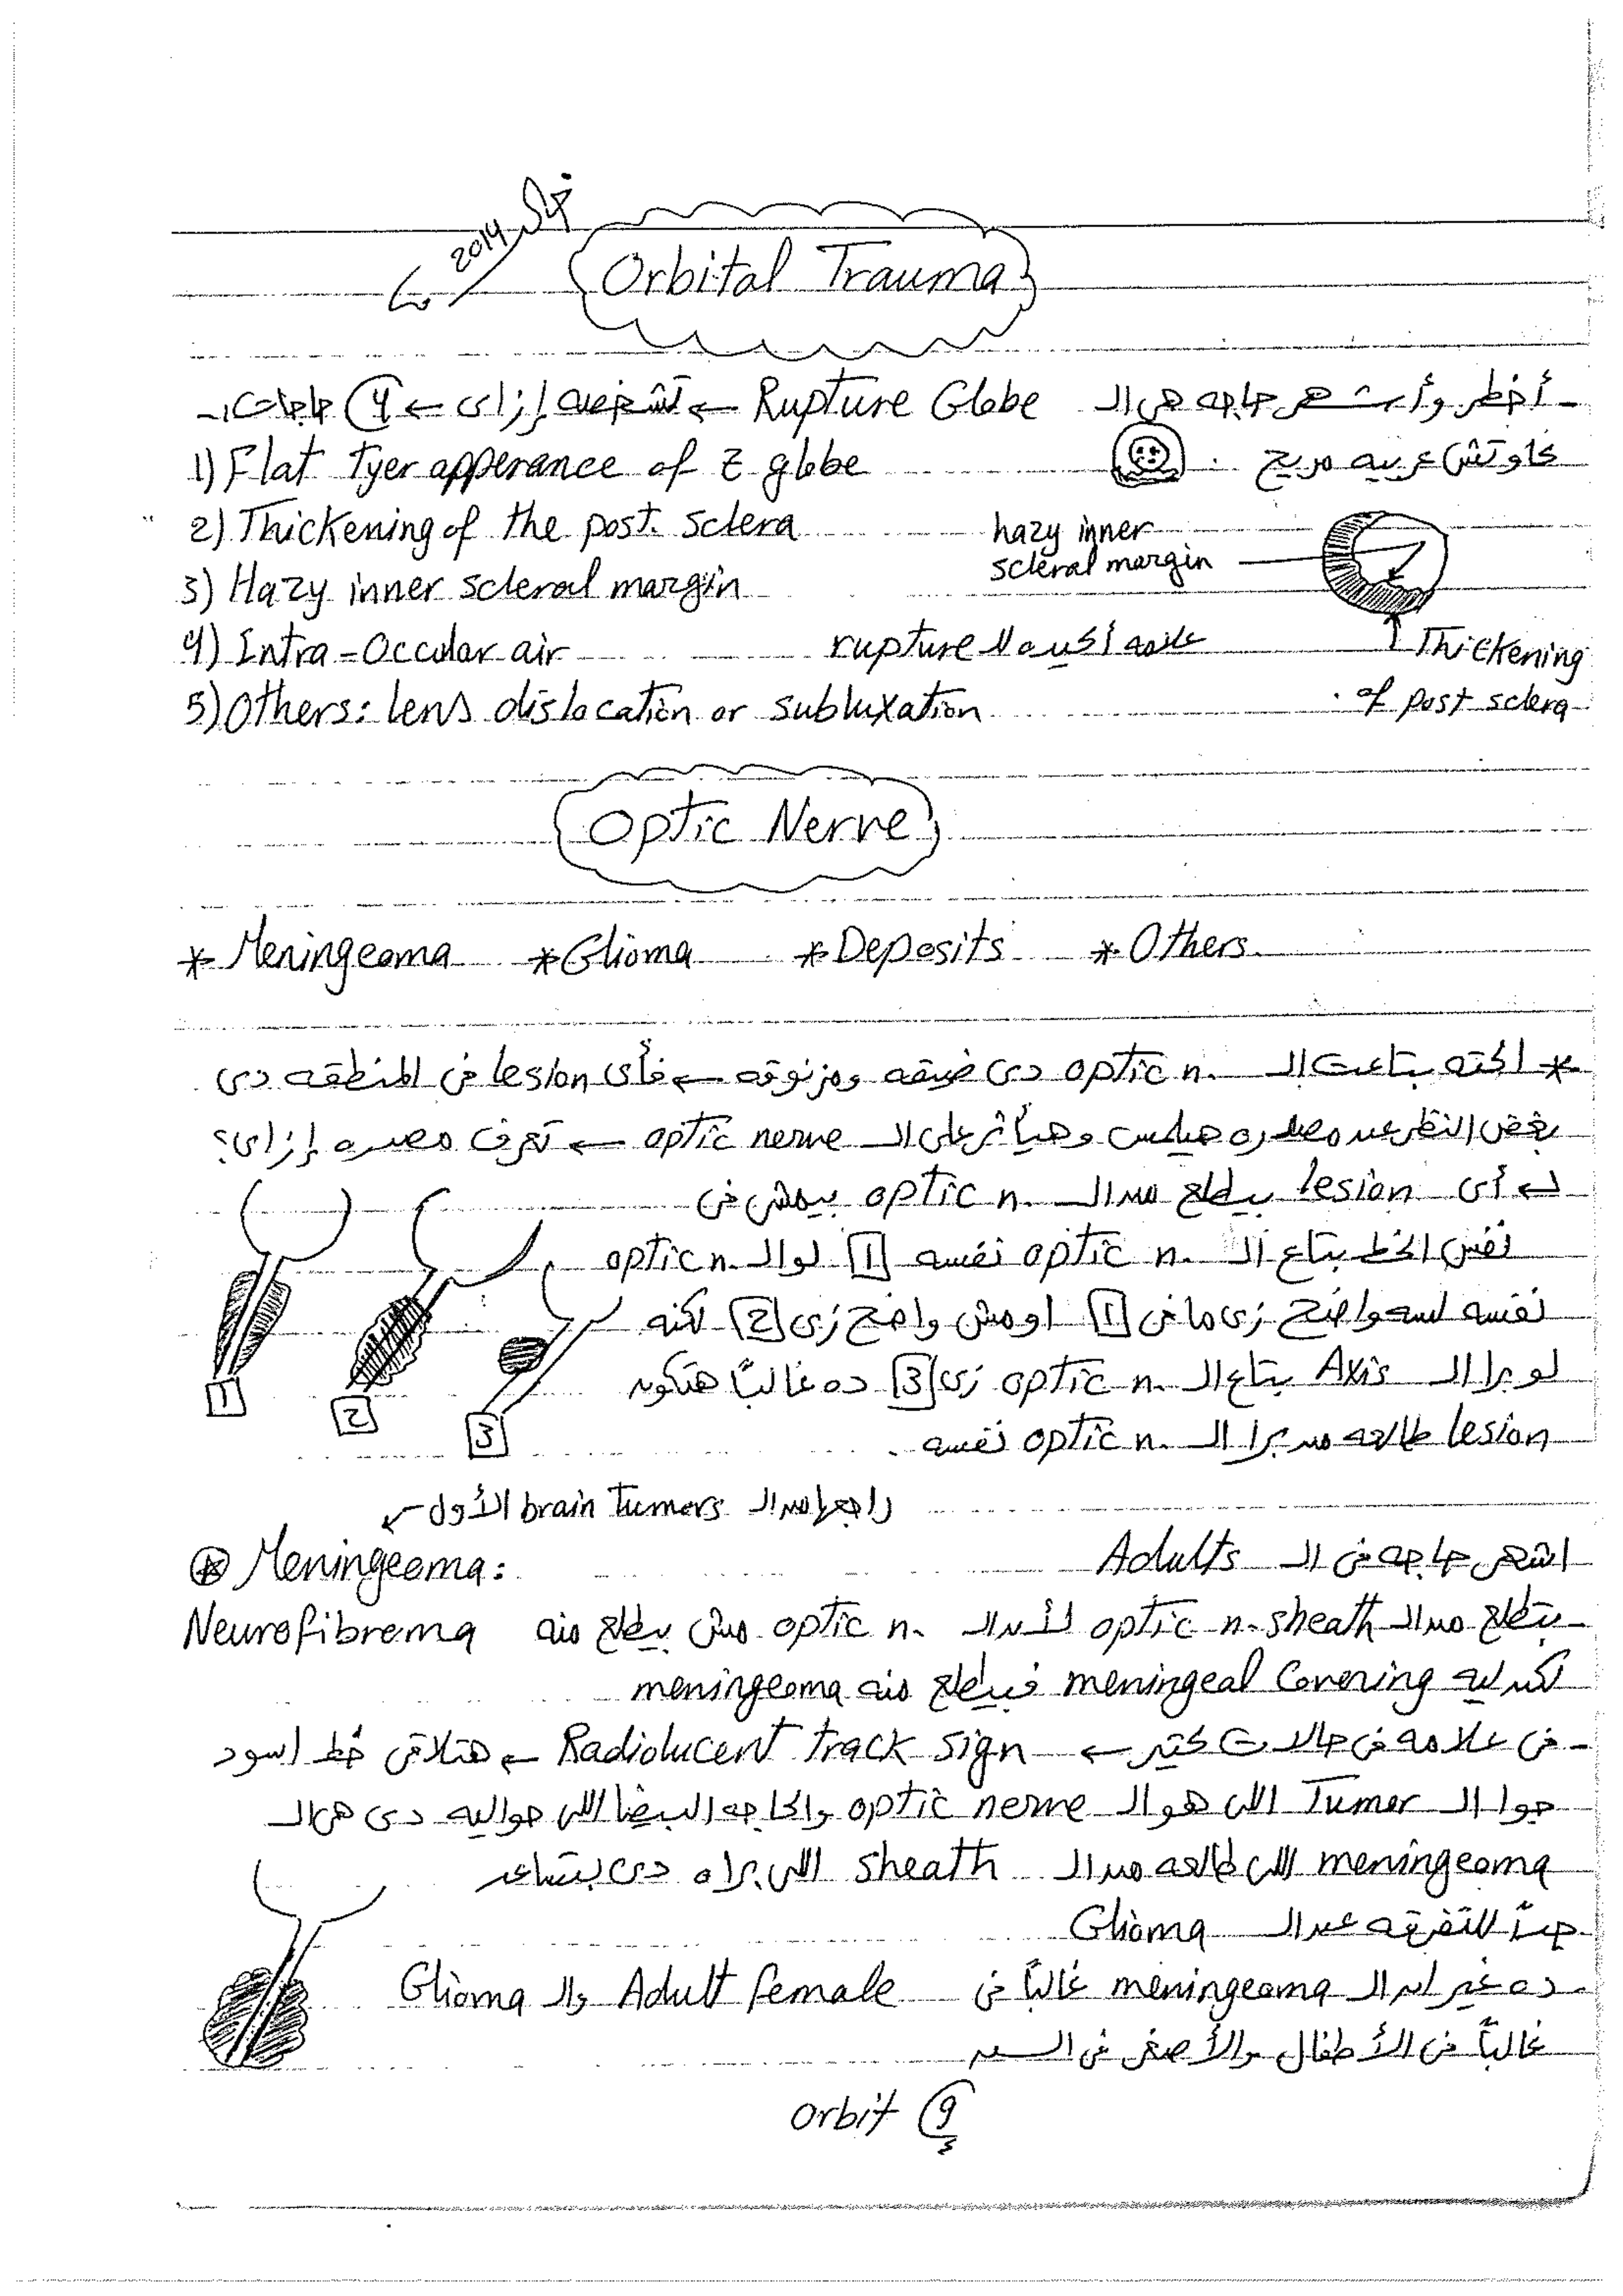 2014
Orbital Trauma
- أخطر وأشهر حاجه هى الـ Rupture Globe ← تشخيصه إزاى ← 4 حاجات :-
1) Flat Tyer apperance of z globe كاوتش عربيه مريح
2) Thickening of the post. sclera
hazy inner
scleral margin
3) Hazy inner scleral margin
4) Intra-Occular air علامه أكيده للـ rupture
Thickening
of post sclera
5) Others: lens dislocation or subluxation
Optic Nerve
* Meningeoma * Glioma * Deposits * Others
* الحته بتاعت الـ optic n. دى ضيقه ومزنوقه ← فأى lesion فى المنطقه دى
بغض النظر عن مصدره هيلمس وهيأثر على الـ optic nerve ← تعرف مصدره إزاى؟
↵ أى lesion بيطلع من الـ optic n. بيمشى فى
نفس الخط بتاع الـ optic n. نفسه 1 لو الـ optic n.
نفسه لسه واضح زى ما فى 1 او مش واضح زى 2 لكنه
لو برا الـ Axis بتاع الـ optic n. زى 3 ده غالباً هتكون
lesion طالعه من برا الـ optic n. نفسه .
1
2
3
راجعها من الـ brain Tumers الأول
* Meningeoma: اشهر حاجه فى الـ Adults
- بتطلع من الـ optic n. sheath لأن الـ optic n. مش بيطلع منه Neurofibrema
لكن ليه meningeal Covering فبيطلع منه meningeoma
- فى علامه فى حالات كتير ← Radiolucent track sign ← هتلاقى خط اسود
جوا الـ Tumer اللى هو الـ optic nerve والحاجه البيضا اللى حواليه دى هى الـ
meningeoma اللى طالعه من الـ sheath اللى براه دى بتساعد
جداً للتفرقه عن الـ Glioma
- ده غير ان الـ meningeoma غالباً فى Adult female والـ Glioma
غالباً فى الأطفال والأصغر فى السن
orbit 9